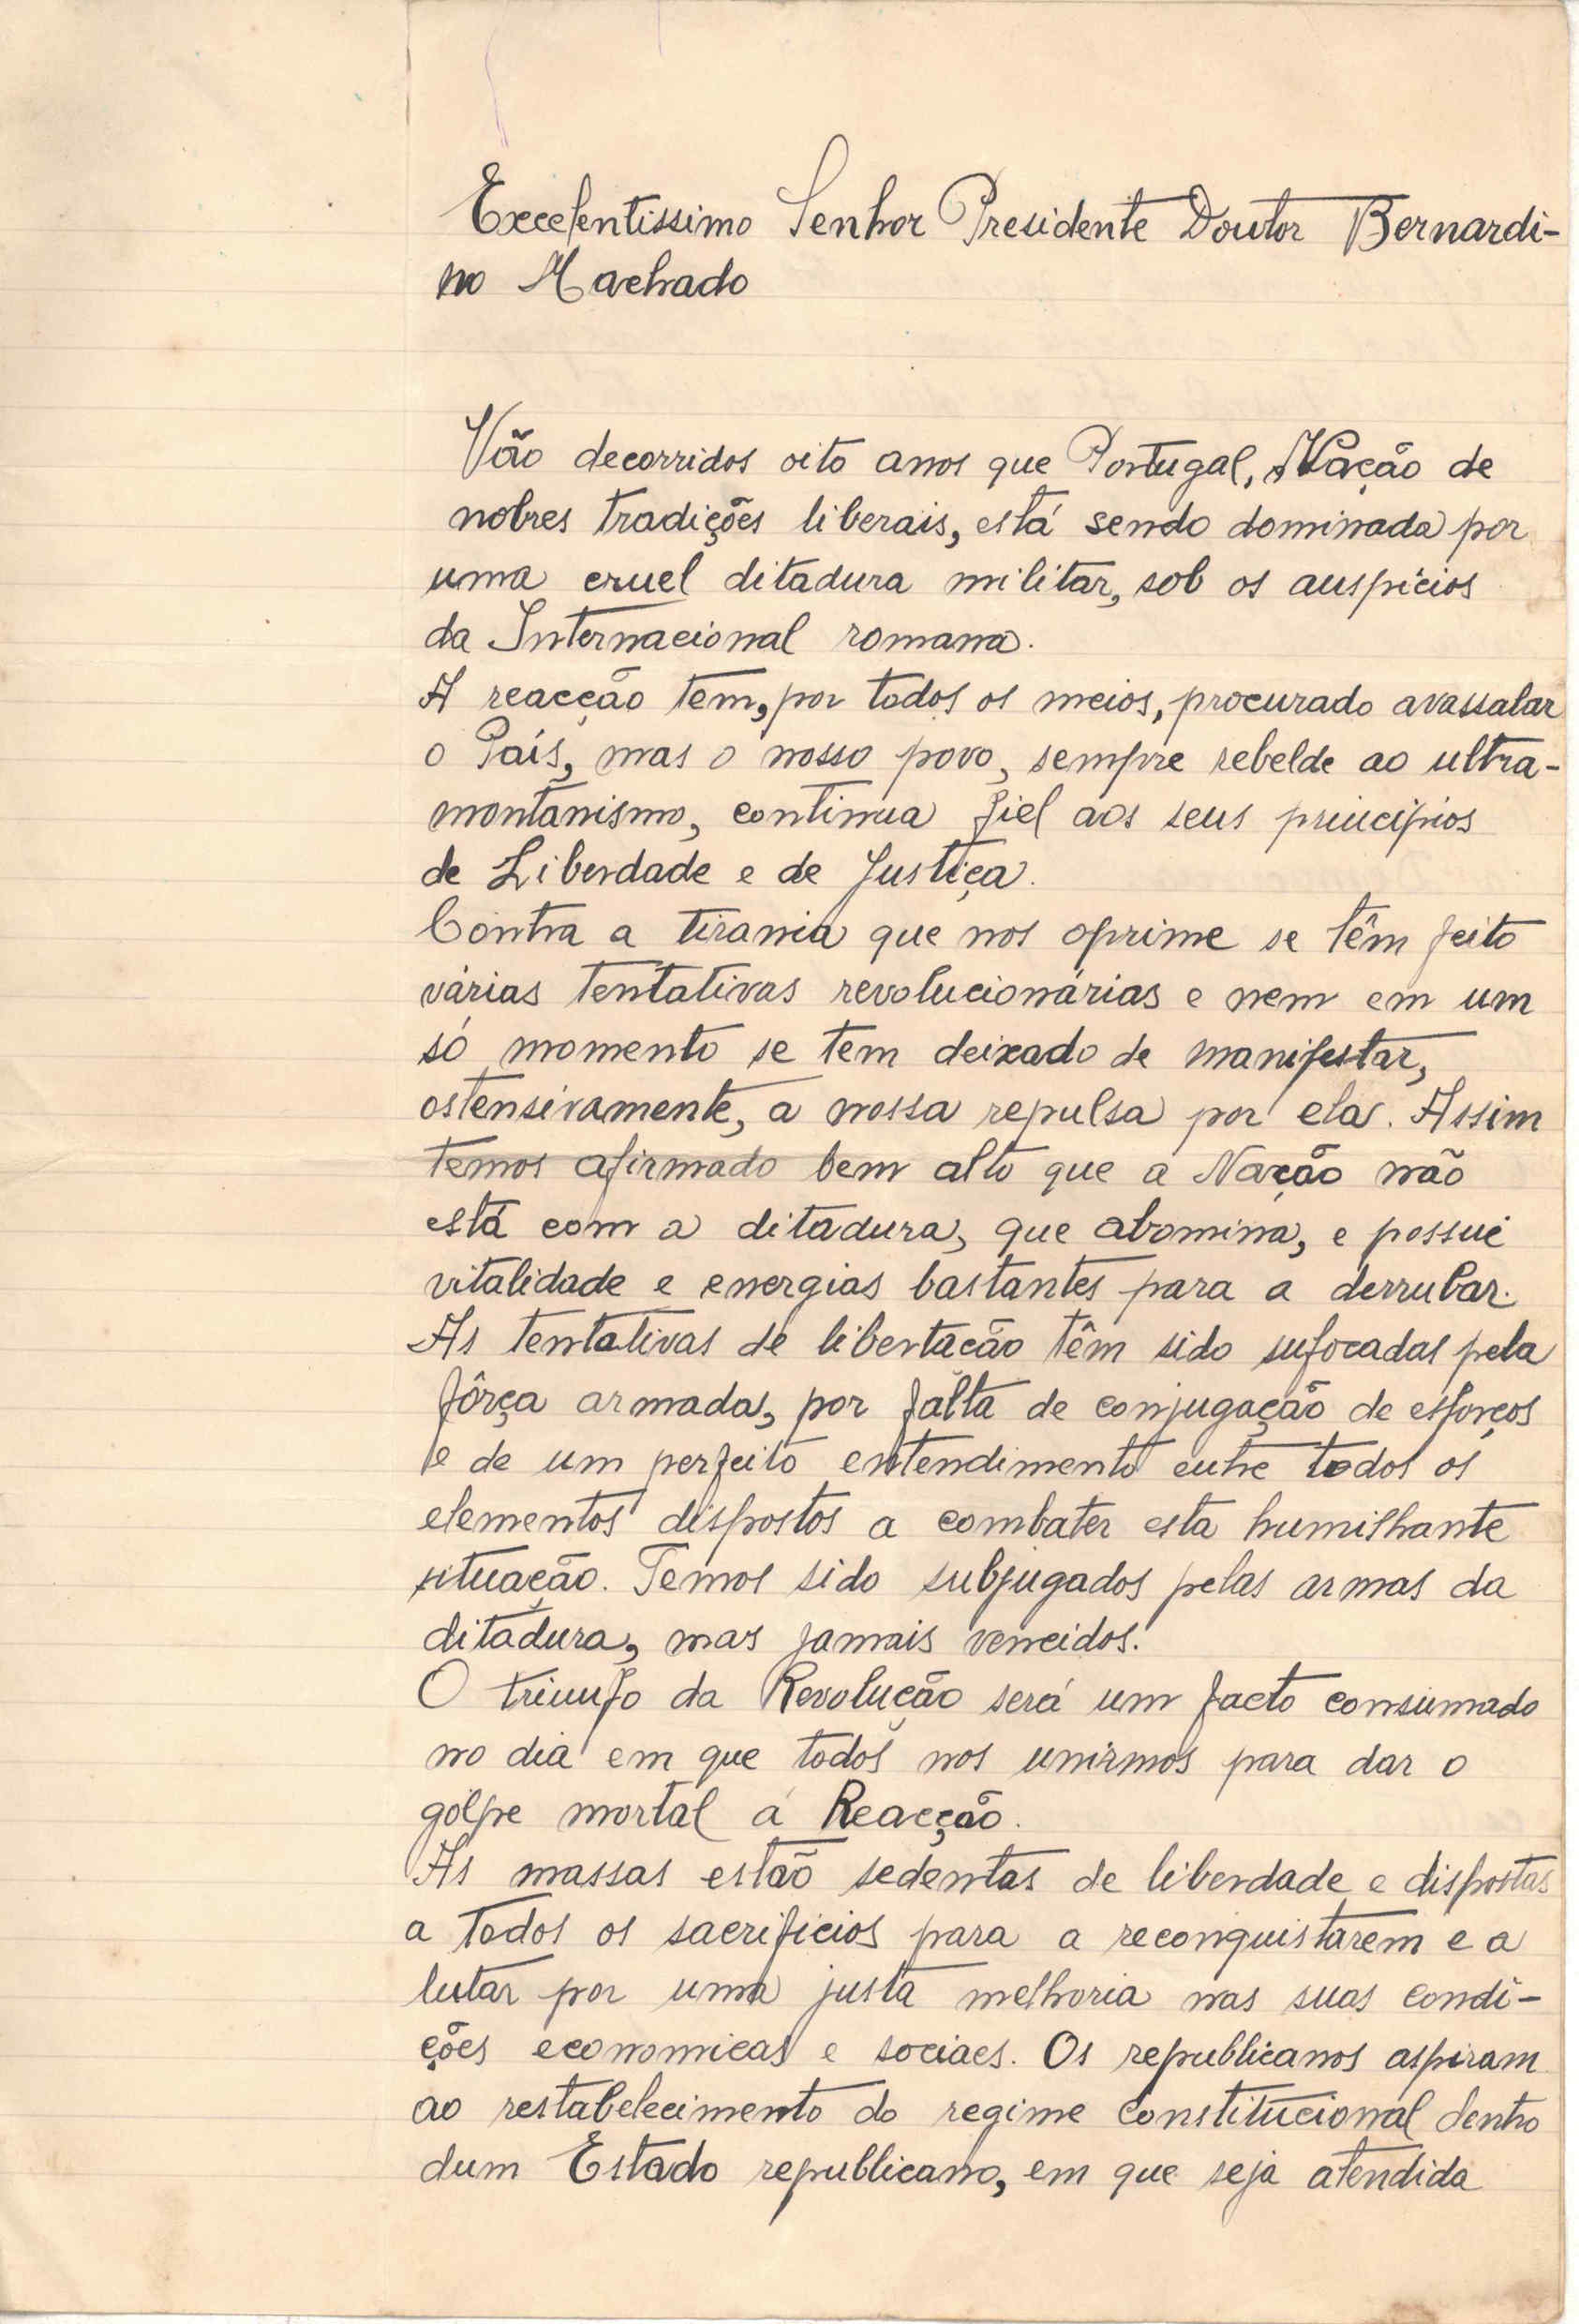 Excelentissimo Senhor Presidente Doutor Bernardi-
no Machado
Vão decorridos oito anos que Portugal, Nação de
nobres tradições liberais, está sendo dominada por
uma cruel ditadura militar, sob os auspicios
da Internacional romana.
A reacção tem, por todos os meios, procurado avassalar
o País, mas o nosso povo, sempre rebelde ao ultra-
montanismo, continua fiel aos seus principios
de Liberdade e de Justiça.
Contra a tirania que nos oprime se têm feito
várias tentativas revolucionárias e nem em um
só momento se tem deixado de manifestar,
ostensivamente, a nossa repulsa por ela. Assim
temos afirmado bem alto que a Nação não
está com a ditadura, que abomina, e possue
vitalidade e energias bastantes para a derrubar.
As tentativas de libertacão têm sido sufocadas pela
fôrça armada, por falta de conjugação de esforços
e de um perfeito entendimento entre todos os
elementos dispostos a combater esta humilhante
situação. Temos sido subjugados pelas armas da
ditadura, mas jamais vencidos.
O triunfo da Revolução será um facto consumado
no dia em que todos nos unirmos para dar o
golpe mortal á Reacção.
As massas estão sedentas de liberdade e dispostas
a todos os sacrificios para a reconquistarem e a
lutar por uma justa melhoria nas suas condi-
ções economicas e sociaes. Os republicanos aspiram
ao restabelecimento do regime constitucional dentro
dum Estado republicano, em que seja atendida